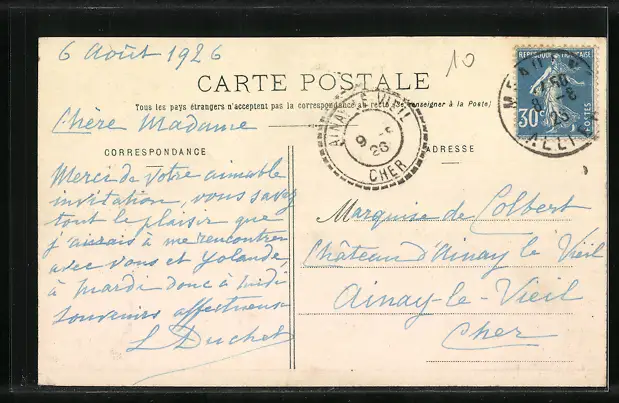 6 Août 1926
10
CARTE POSTALE
Tous les pays étrangers n'acceptent pas la correspondance au recto (Se renseigner à la Poste)
RÉPUBLIQUE FRANÇAISE
30c
POSTES
8-8
26
ALLIER
AINAY-LE-VIEIL
9 -8
26
CHER
Chère Madame
CORRESPONDANCE
ADRESSE
Merci de votre aimable
invitation, vous savez
tout le plaisir que
j'aurais à me rencontrer
avec vous et Yolande
à mardi donc à midi
souvenirs affectueux
L Duchet
Marquise de Colbert
Château d'Ainay le Vieil
Ainay-le-Vieil
Cher